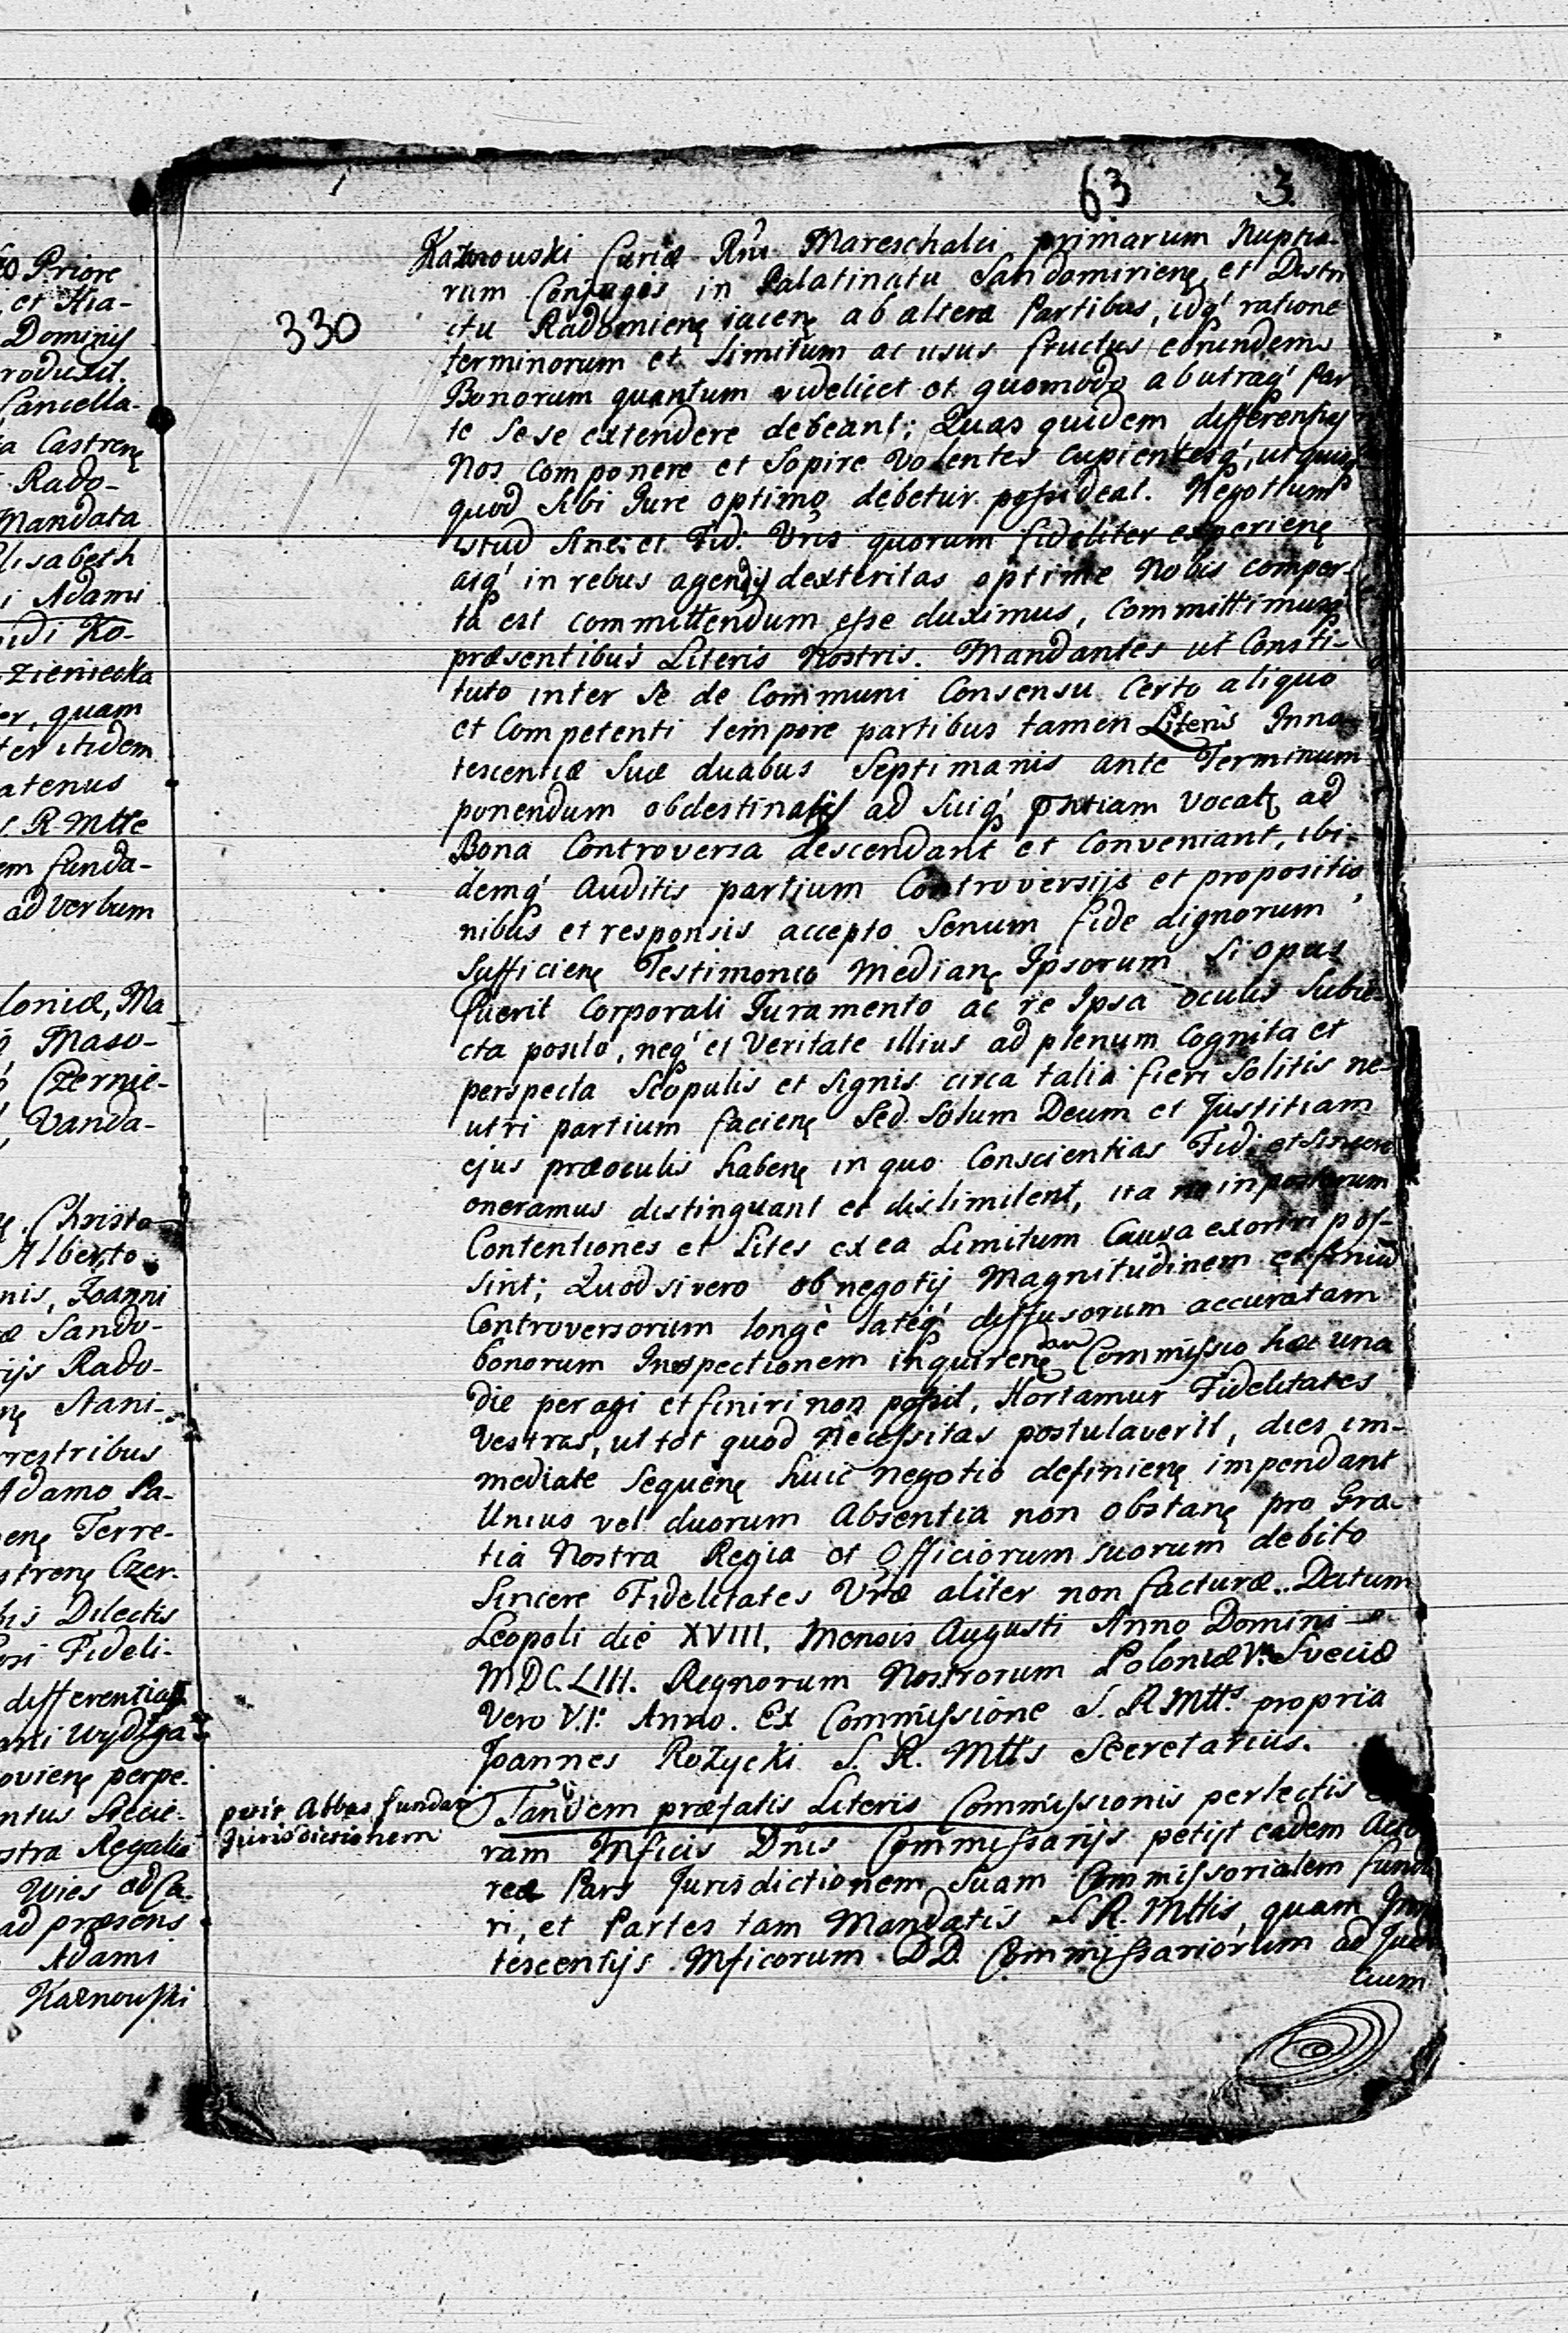 63 3.
330
Kaznowski Curiæ Rni Mareschalci primarum Nuptia-
rum Conjugis in Palatinatu Sandomirienę et Distri
ctu Radomienę iacenę ab altera Partibus, idq' ratione
terminorum et Limitum ac usus fructus eorundem
Bonorum quantum videlicet et quomodo ab utraq' Par
te sese extendere debeant; Quas quidem differentias
Nos componere et sopire Volentes cupientesq', ut quis
quod sibi Jure optimo debetur possideat. Negotium
istud Sinc: et Fid: Vris quorum fideliter experienę
atq' in rebus agendis dexteritas optime Nobis comper-
ta est committendum esse duximus, Committimusq'
præsentibus Literis Nostris. Mandantes ut Consti-
tuto inter se de Communi Consensu Certo aliquo
et Competenti tempore partibus tamen Literis Inno-
tescentiæ Suæ duabus Septimanis ante Terminum
ponendum obdestinatis ad Suiq' pntiam Vocatę ad
Bona Controversa descendant et Conveniant, ibi-
demq' Auditis partium Controversijs et propositio
nibus et responsis accepto Senum fide dignorum
Sufficienę Testimonio Medianę Ipsorum Si opus
fuerit Corporali Juramento ac re Ipsa oculis Subie-
cta posito, neq' et Veritate illius ad plenum Cognita et
perspecta Scopulis et Signis circa talia fieri Solitis ne-
utri partium facienę Sed Solum Deum et Justitiam
ejus præoculis habenę in quo Conscientias Fid: et Sincere
oneramus distinguant et dislimitent, ita ne in posterum
Contentiones et Lites ex ea Limitum Causa exoriri pos-
sint; Quod si vero ob negotij Magnitudinem et finiũ
Controversorum longè latéq' diffusorum accuratam
bonorum Inspectionem inquirenę Commissio hæc una
die peragi et finiri non possit, Hortamur Fidelitates
Vestras, ut tot quod Necessitas postulaverit, dies im-
mediate Sequenę huic negotio definienę impendant
Unius vel duorum Absentia non obstanę pro Gra-
tia Nostra Regia et Officiorum suorum debito
Sincere Fidelitates Vræ aliter non facturæ.. Datum
Leopoli die XVIII. Mensis Augusti Anno Domini
MDC.LIII. Regnorum Nostrorum Poloniæ V. Sveciæ
Vero V.I: Anno. Ex Commissione S. R Mtts. propria
Joannes Rożycki S. R. Mtts Secretarius.
petit Abbas fundari
Jurisdictionem
Tandem præfatis Literis Commissionis perlectis
ram Mficis Dnis Commissarijs petijt eadem Acto
rea Pars Jurisdictionem Suam Commissorialem funda
ri, et Partes tam Mandatis S R. Mttis, quam Inno
tescentijs Mficorum DD. Commissariorum ad Judi
cium
Priore
et Hia-
Dominis
roduxit.
Cancella-
a Castrenę
Rado-
Mandata
lisabeth
i Adami
Ko-
zieniecka
er, quam
ter itidem
atenus
R Mtte
em funda-
ad Verbum
loniæ, Ma
Maso-
Czernie-
Vanda-
Christo-
Alberto
nis, Joanni
æ Sando-
ijs Rado-
nę Stani-
rrestribus
Adamo Pa-
enę Terre-
strenę Czer-
bis Dilectis
Fideli-
differentias
ani Wydżga
ovienę perpe-
ntus Specie-
stra Regalis
Wies ad Ca-
ad præsens
Adami
Kaznowski